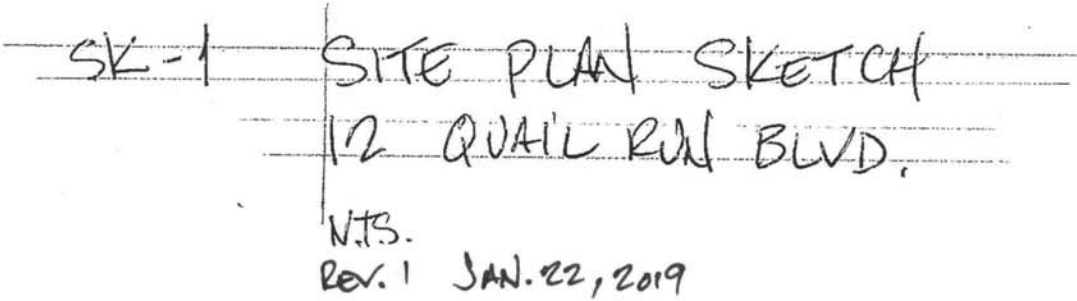 SK-1 SITE PLAN SKETCH
12 QUAIL RUN BLVD.
N.T.S.
REV. 1 JAN. 22, 2019